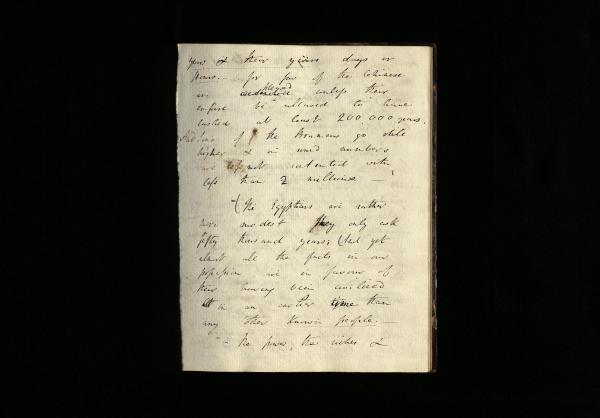 year & their days or
hours. — for few of the Chinese
are unless their
empire be allowed to have
lasted at least 200,000 years.
And some of the Bramins go still
higher & in round numbers
are not contented with
less than 2 millions —
The Egyptians are rather
more modest they only ask
fifty thousand years; And yet
almost all the facts in our
possession are in favour of
their having been civilized
at an earlier time than
any other known people. —
— The power, the riches &